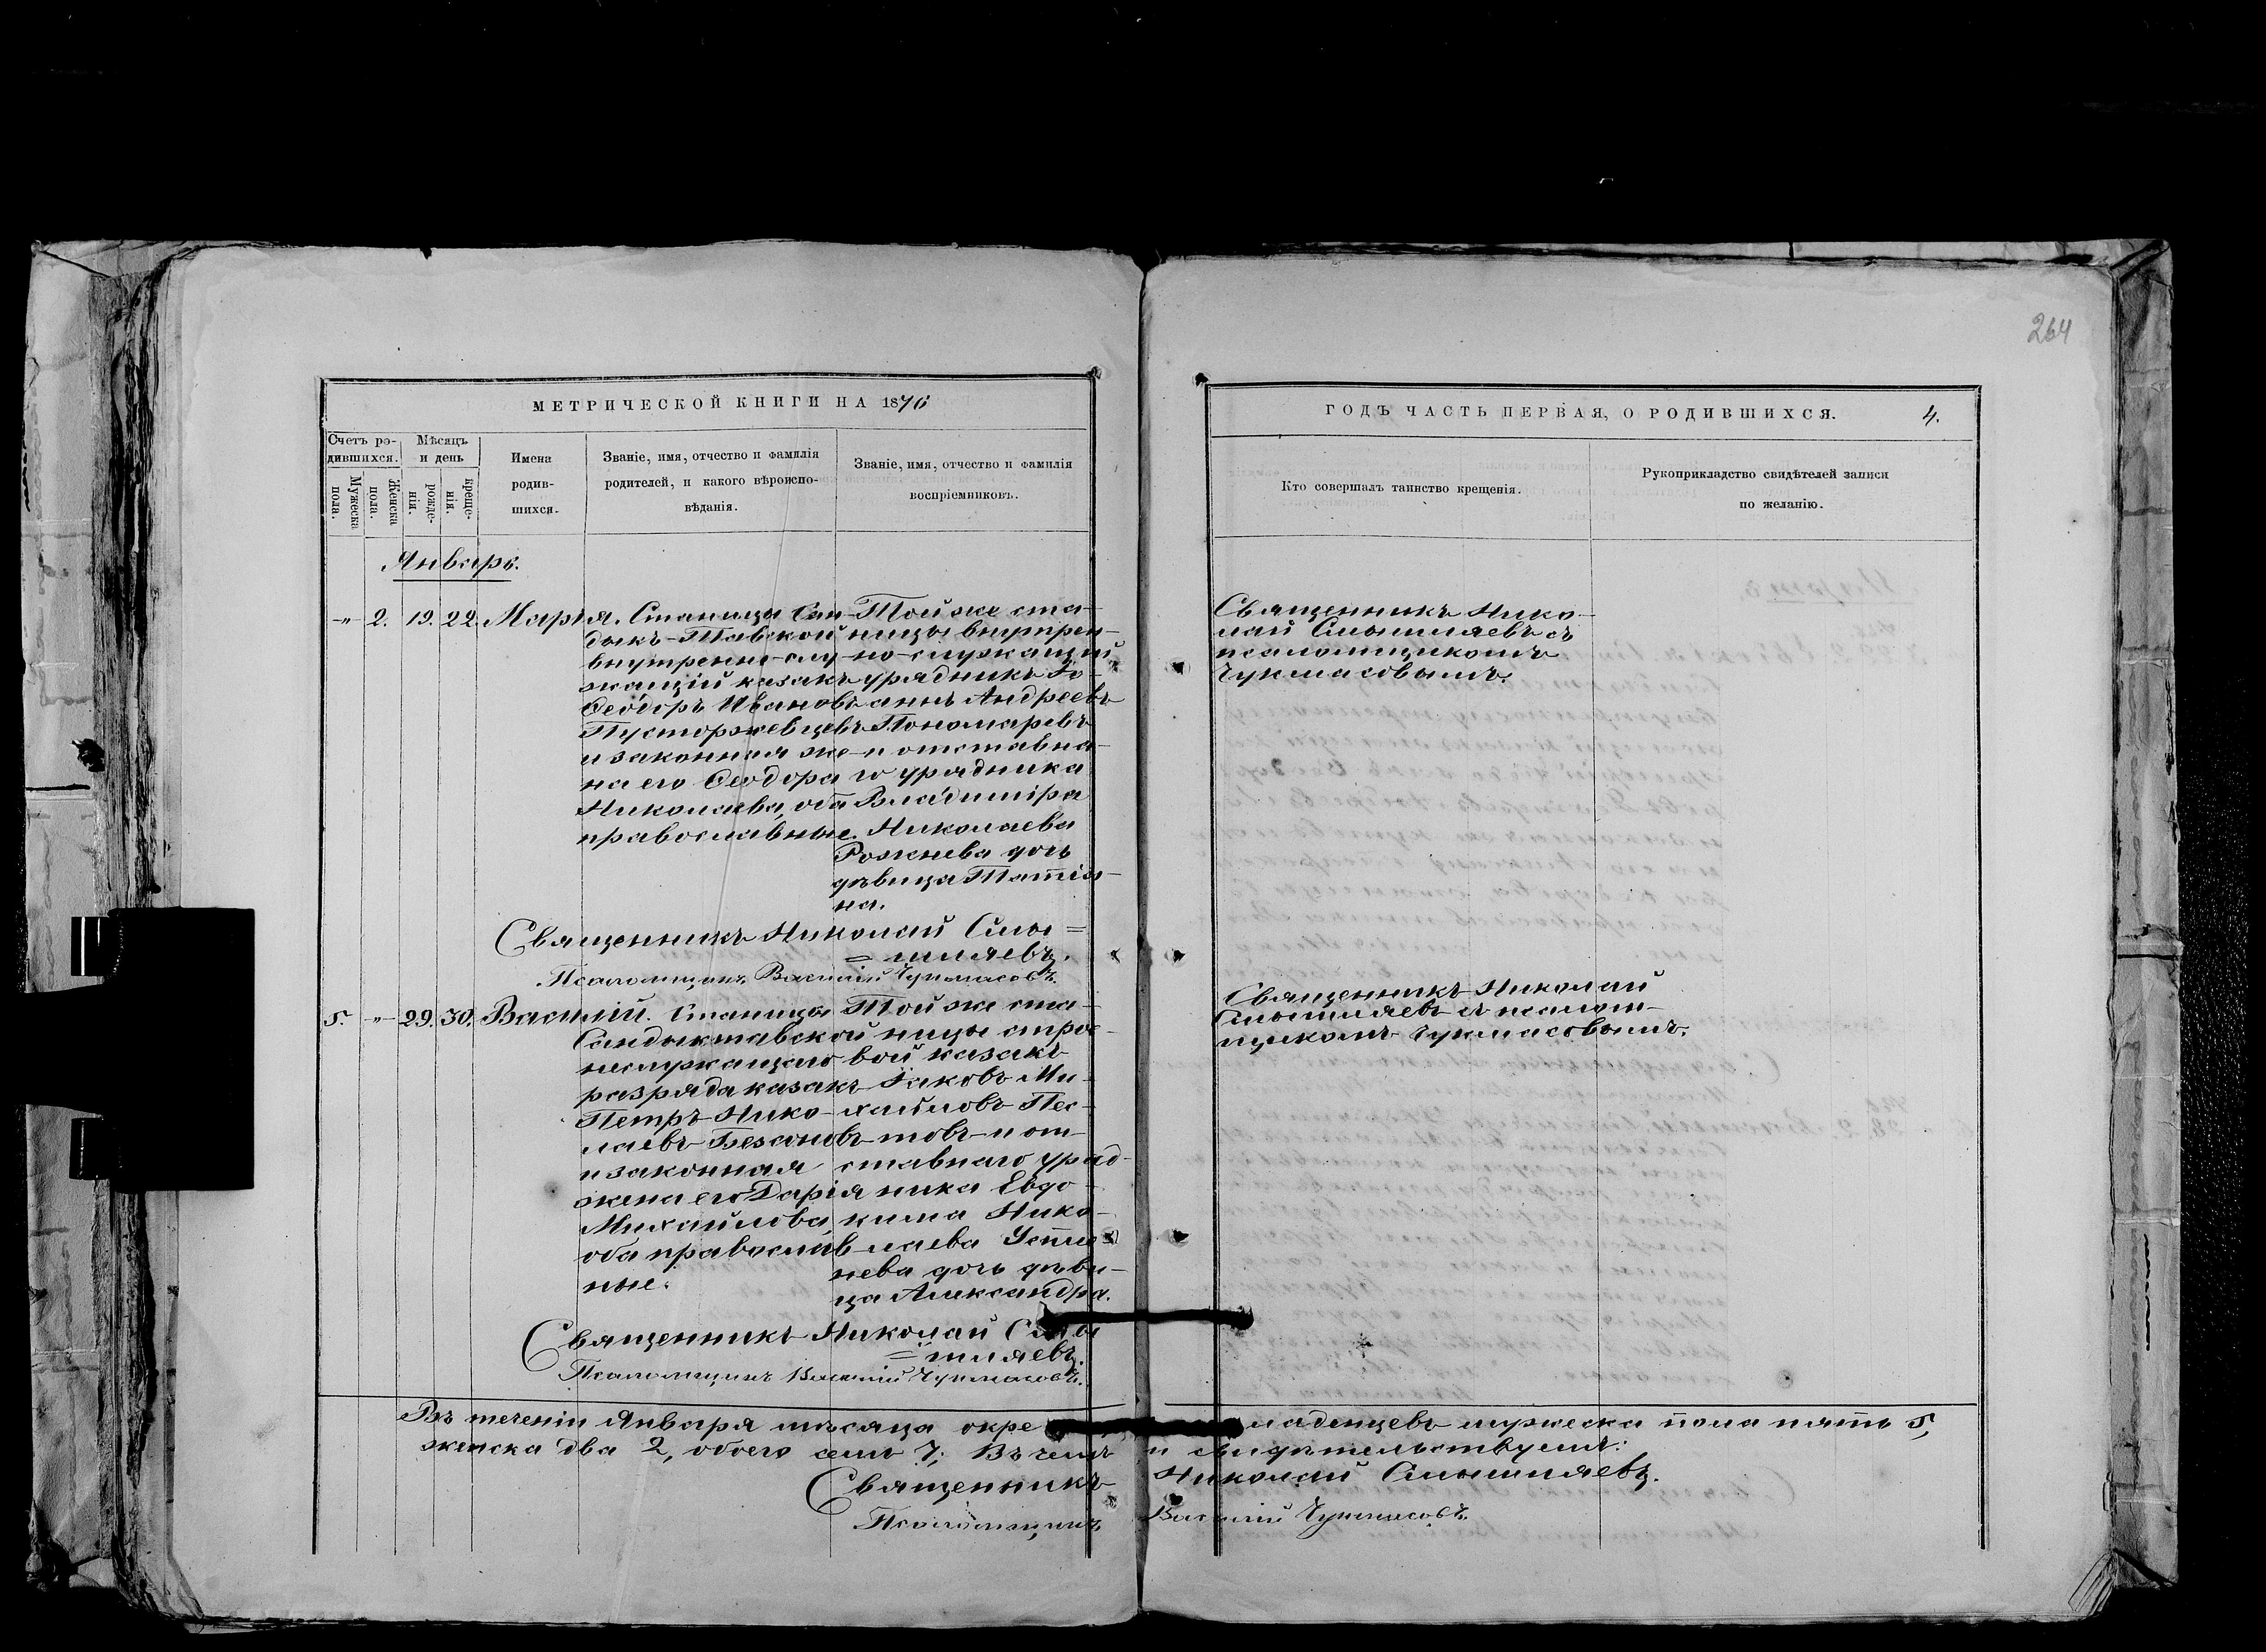 264
МЕТРИЧЕСКОЙ КНИГИ НА 1876
Счетъ ро-
дившихся.
Мужеска
пола.
Женска
пола.
Мѣсяцъ
и день
рожде-
нія.
креще-
нія.
Имена
родив-
шихся.
Званіе, имя, отчество и фамилія
родителей, и какого вѣроиспо-
вѣданія.
Званіе, имя, отчество и фамилія
воспріемниковъ.
ГОДЪ ЧАСТЬ ПЕРВАЯ, О РОДИВШИХСЯ. 4.
Кто совершалъ таинство крещенія.
Рукоприкладство свидѣтелей записи
по желанію.
Январь.
-"- 2. 19. 22. Марія.
Станицы Сан-
дыкъ-Тавской
внутренне-слу-
жащій казакъ
Ѳеодоръ Ивановъ
Пусторжевцевъ
и законная же-
на его Ѳеодора
Николаева, оба
православные.
Той же ста-
ницы внутрен-
но-служащий
урядникъ Іо-
аннъ Андреевъ
Пономаревъ
и отставна-
го урядника
Владиміра
Николаева
Рожнева дочь
дѣвица Татія-
на.
Священникъ Нико-
лай Смышляевъ съ
псаломщикомъ
Чукмасовымъ.
Священникъ Николай Смы=
=шляевъ.
Псаломщикъ Василій Чукмасовъ.
5. -"- 29. 30. Василій.
Станицы
Сандыктавской
неслужащаго
разряда казакъ
Петръ Нико-
лаевъ Безсоновъ
и законная
жена его Дарія
Михайлова,
оба православ-
ные.
Той же ста-
ницы строе-
вой казакъ
Іаковъ Ми-
хайловъ Пес-
товъ и от-
ставнаго уряд-
ника Евдо-
кима Нико-
лаева
дочь дѣви-
ца Александра.
Священникъ Николай
Смышляевъ съ псалом-
щикомъ Чукмасовымъ.
Священникъ Николай Смы
=шляевъ.
Псаломщикъ Василій Чукмасовъ.
Въ теченіи Января мѣсяца окре младенцевъ мужеска пола пять 5,
женска два 2, обоего семь 7; Въ чемъ и свидѣтельствуемъ:
Священникъ Николай Смышляевъ.
Псаломщикъ Василій Чукмасовъ.